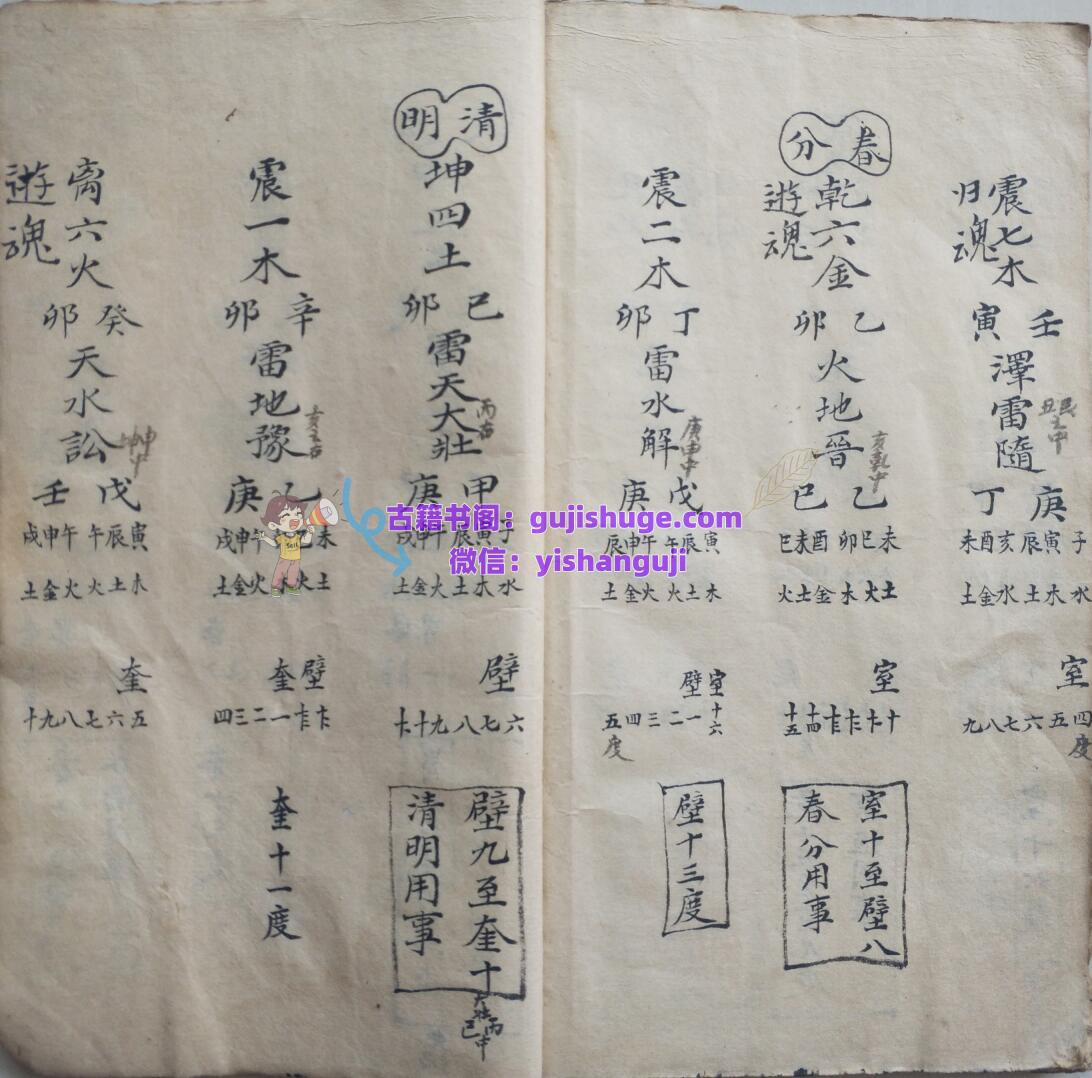 震七木
归魂
壬寅
澤雷隨
庚丁
子寅辰亥酉未
水木土水金土
室
四度五六七八九
春分
乾六金
遊魂
乙卯
火地晉
亥乾中
乙巳
未巳卯酉未巳
土火木金土火
室
十十一十二十三十四十五
室十至壁八
春分用事
震二木
丁卯
雷水解
庚申中
戊庚
寅辰午午申辰
木土火火金土
室十六
壁
一二三四五度
壁十三度
清明
坤四土
己卯
雷天大壯
甲庚
子寅辰午申戌
水木土火金土
壁
六七八九十十一
壁九至奎十
清明用事
大壮丙中
震一木
辛卯
雷地豫
乙庚
未巳卯午申戌
土火木火金土
壁奎
十二十三一二三四
奎十一度
离六火
遊魂
癸卯
天水訟
戊壬
寅辰午午申戌
木土火火金土
奎
五六七八九十
古籍书阁：gujishuge.com
微信：yishanguji